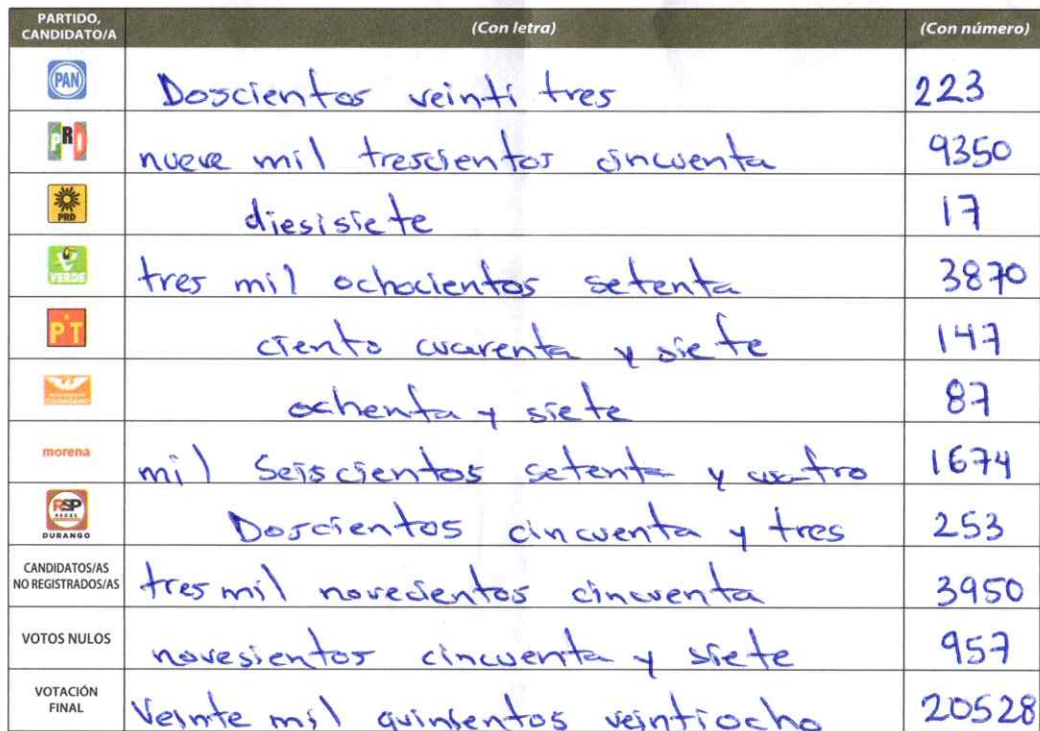 PARTIDO, CANDIDATO/A (Con letra) (Con número)
PAN Doscientos veinti tres 223
PRI nueve mil trescientos cincuenta 9350
PRD diesisiete 17
VERDE tres mil ochocientos setenta 3870
PT ciento cuarenta y siete 147
ochenta y siete 87
morena mil Seiscientos setenta y cuatro 1674
RSP DURANGO Doscientos cincuenta y tres 253
CANDIDATOS/AS NO REGISTRADOS/AS tres mil novecientos cincuenta 3950
VOTOS NULOS novesientos cincuenta y siete 957
VOTACIÓN FINAL Veinte mil quinientos veintiocho 20528